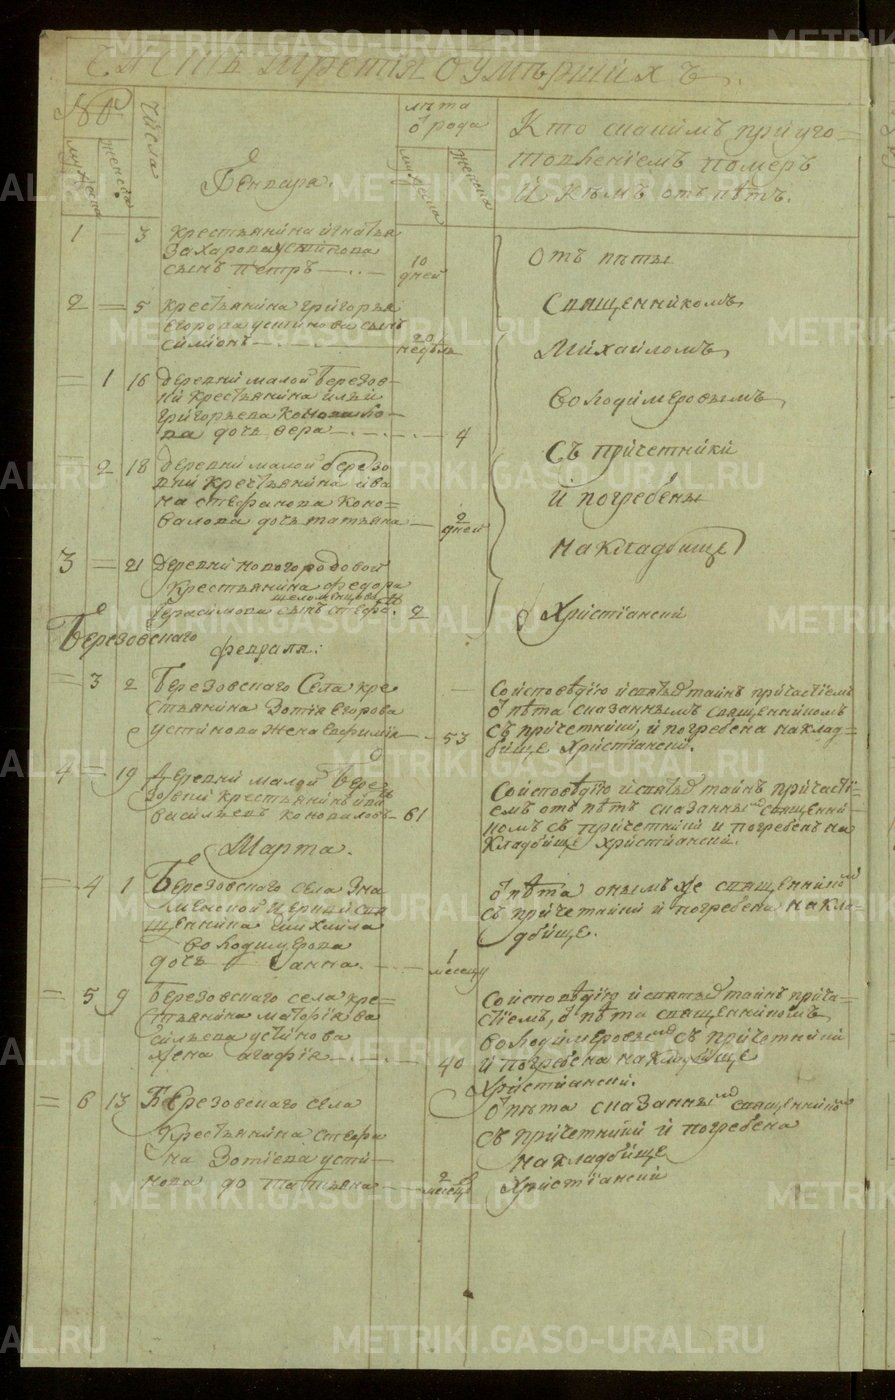 Часть третія оумѣршихъ.
№
мужеска
женска
Числа
Генваря.
лѣта
ѿ рода
мужеска
женска
Кто какимъ пріуго=
товленіемъ померъ
и кѣмъ отпѣтъ.
1 — 3 крестьянина игнатья
Захарова устинова
сынъ петръ — 10
дней
2 = 5 крестьянина григорья
Егорова устинова сынъ
симионъ — 20
недѣль
= 1 16 деревни малой березов=
ки крестьянина ильи
григорьева коновало=
ва дочь вера — 4
= 2 18 деревни малой березо
вки крестьянина ива
на стефанова коно=
валова дочь татьяна — 2
дней
3 = 21 Деревни новогородовой
крестьянина федора
щеломенцова
герасимова сынъ стефа. 2
Отъ пѣты
Священникомъ
Михайломъ
володимеровымъ
Съ причетники
и погребены
на кладбище
Христианский
Березовскаго
февраля:
= 3 2 Березовскаго Села кре
стьянина Зотія Егорова
устинова жена Евфимія — 53
Со исповѣдію и святыхъ тайнъ причастіемъ
опѣта сказаннымъ священникомъ
съ причетники, и погребена на клад=
бище христіанский.
4 = 19 Деревни малой Бере
зовки крестьянинъ
васильевъ коноваловъ — 61
Со исповѣдію и святыхъ тайнъ причасті=
емъ отъ пѣтъ сказаннымъ священни
комъ съ причетники и погребенъ на
кладбище христіанский.
Марта.
= 4 1 Березовскаго села Зна
менской церкви свя
щенника Михаила
володимерова
дочь анна. — 1
месецу
опѣта онымъ же священникомъ
съ причетники и погребена на кла=
дбище.
= 5 9 Березовскаго села кре=
стьянина матфія ва
сильева устинова
жена агафія — 40
Со исповѣдію и святыхъ тайнъ прича=
стіемъ, опѣта священникомъ
володимеровымъ съ причетники
и погребена на кладбище
христіанский.
= 6 13 Березовскаго села
крестьянина стефа
на Зотіева усти=
нова до татьяна — 2
месецовъ
опѣта сказаннымъ священникомъ
съ причетники и погребена
на кладбище
христіанский
METRIKI.GASO-URAL.RU